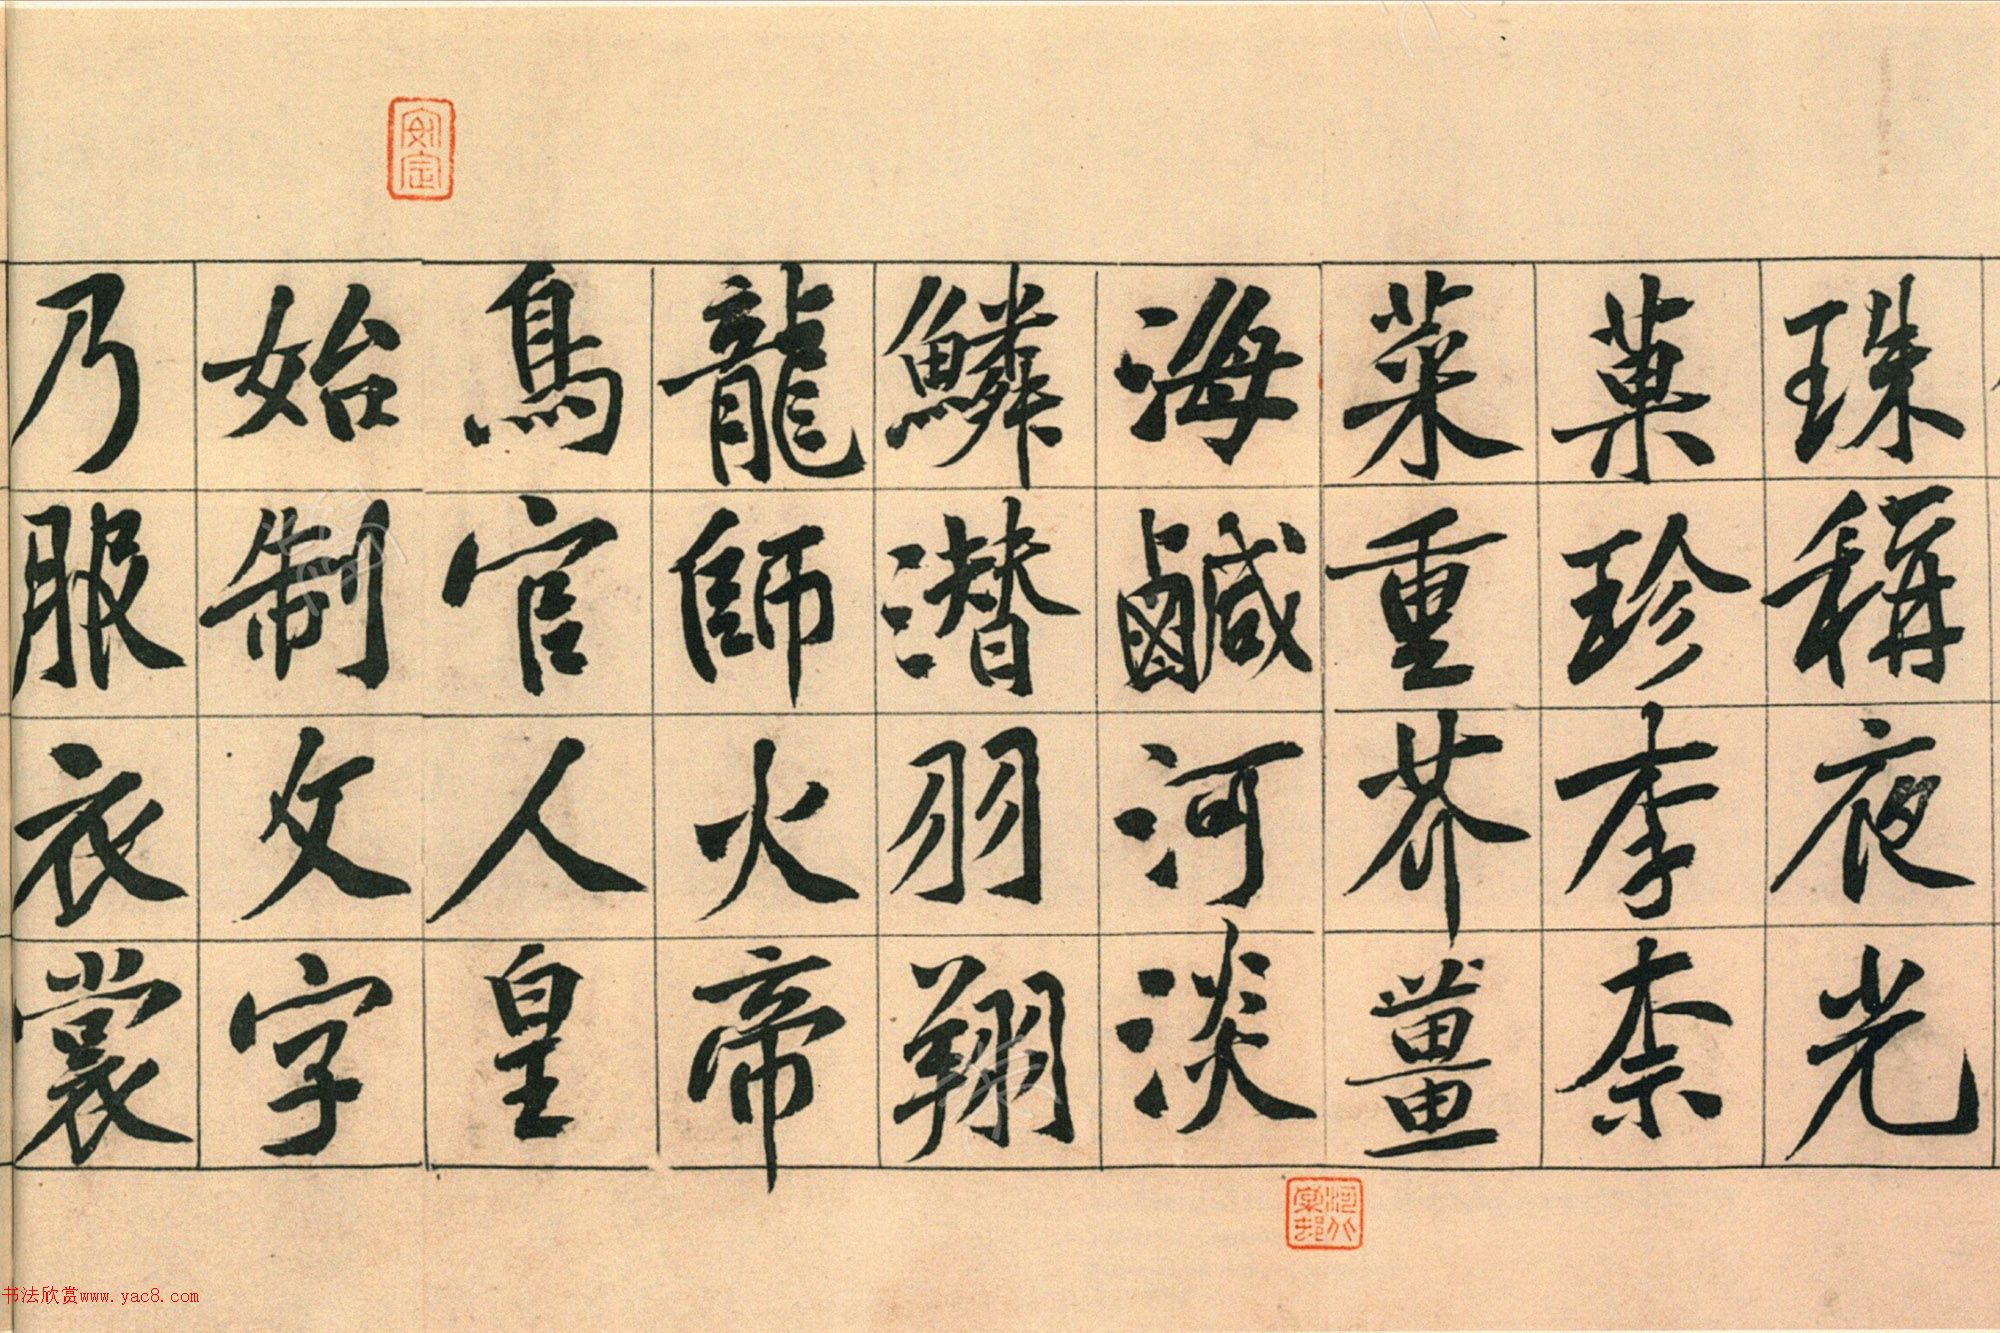 珠稱夜光
菓珍李柰
菜重芥薑
海鹹河淡
鱗潛羽翔
龍師火帝
鳥官人皇
始制文字
乃服衣裳
安定
书法欣赏www.yac8.com